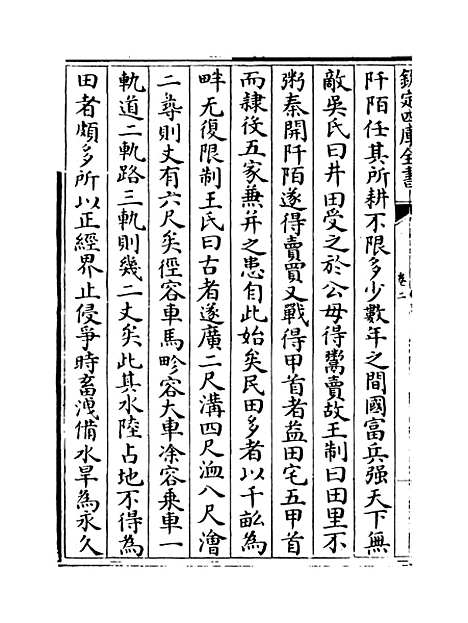 欽定四庫全書
卷二
阡陌任其所耕不限多少數年之間國富兵强天下無
敵吳氏曰井田受之於公毋得鬻賣故王制曰田里不
粥秦開阡陌遂得賣買又戰得甲首者益田宅五甲首
而隷役五家兼并之患自此始矣民田多者以千畝為
畔无復限制王氏曰古者遂廣二尺溝四尺洫八尺澮
二尋則丈有六尺矣徑容車馬畛容大車涂容乗車一
軌道二軌路三軌則幾二丈矣此其水陸占地不得為
田者頗多所以正經界止侵爭時畜洩備水旱為永久